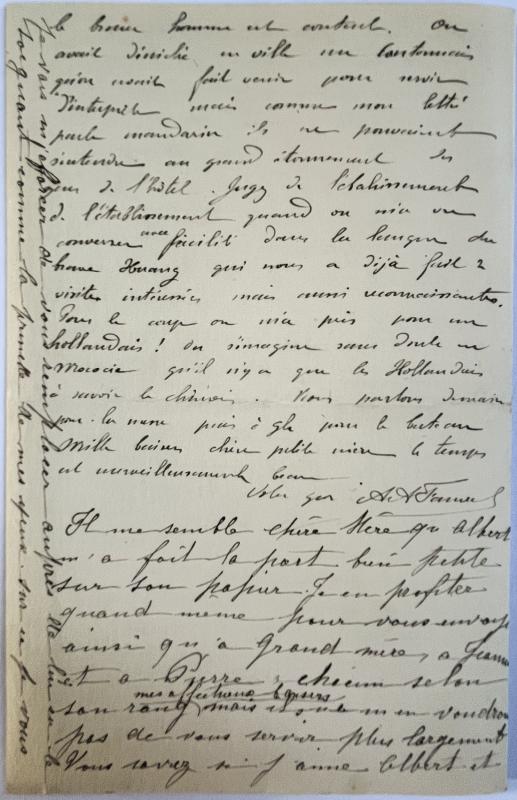 le brave homme est content. On
avait déniché en ville un Cantonnais
qu'on avait fait venir pour servir
d'interprète mais comme mon lettré
parle mandarin ils ne pouvaient
s'entendre au grand étonnement des
gens de l'hôtel. Jugez de l'étalissement
de l'établissement quand on m'a vu
converser avec facilité dans la langue du
brave Huang qui nous a déjà fait 2
visites intéressées mais aussi reconnaissantes.
Pour le coup on m'a pris pour un
hollandais ! On s'imagine sans doute en
qu'il n'y a que les Hollandais
à savoir le chinois. Nous partons demain
pour la puis à pour le bateau
Mille baisers chère petite mère le temps
est merveilleusement beau
Il me semble chère Mère qu'Albert
m'a fait la part bien petite
sur son papier. Je en profiter
quand même pour vous envoyer
ainsi qu'a Grand mère, a Jeanne
et a Pierre, chacun selon
son rang mes affectueux baisers mais m'en voudrons
pas de vous servir plus largement
Vous savez si j'aime Albert et
Je vais m'efforcer de vous remplacer auprès de lui en le
comme la prunelle de mes yeux. Sur ce je vous